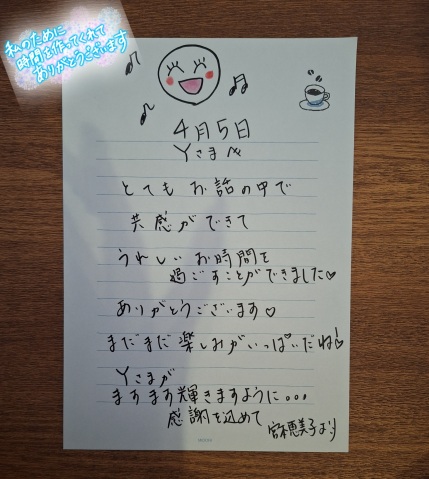 私のために
時間を作ってくれて
ありがとうございます
4月5日
Yさまへ
とてもお話の中で
共感ができて
うれしいお時間を
過ごすことができました♡
ありがとうございます♡
まだまだ楽しみがいっぱいだね!
Yさまが
ますます輝きますように...
感謝を込めて
恵美子より